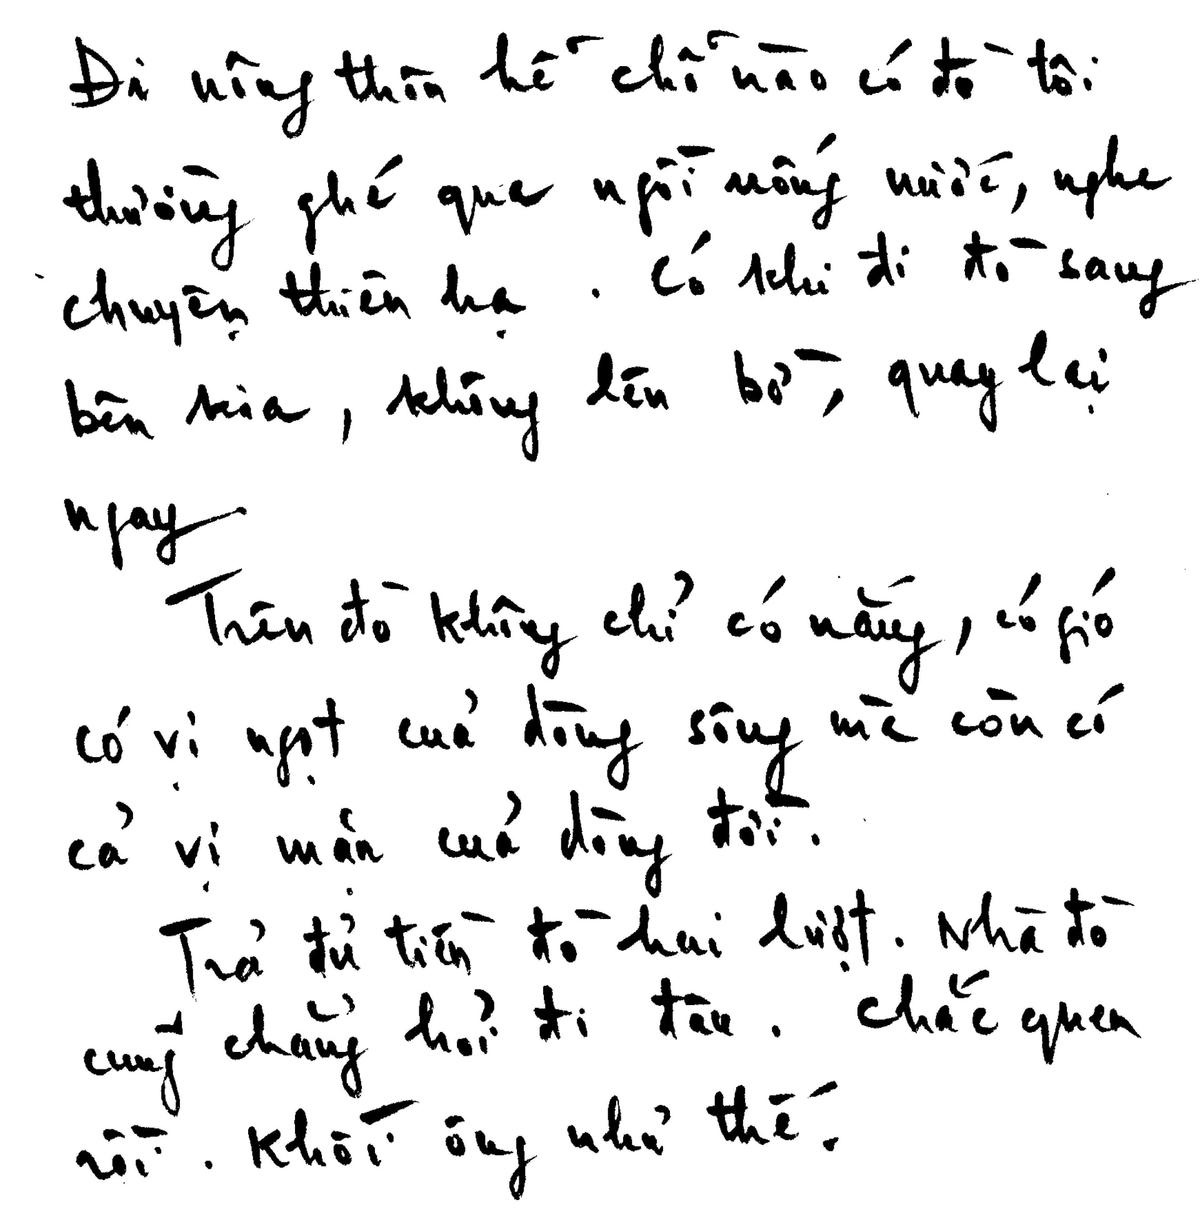 Đi nông thôn hễ chỗ nào có đò tôi
thường ghé qua ngồi uống nước, nghe
chuyện thiên hạ. Có khi đi đò sang
bên kia, không lên bờ, quay lại
ngay
Trên đò không chỉ có nắng, có gió
có vị ngọt của dòng sông mà còn có
cả vị mặn của dòng đời.
Trả đủ tiền đò hai lượt. Nhà đò
cũng chẳng hỏi đi đâu. Chắc quen
rồi. Khối ông như thế.